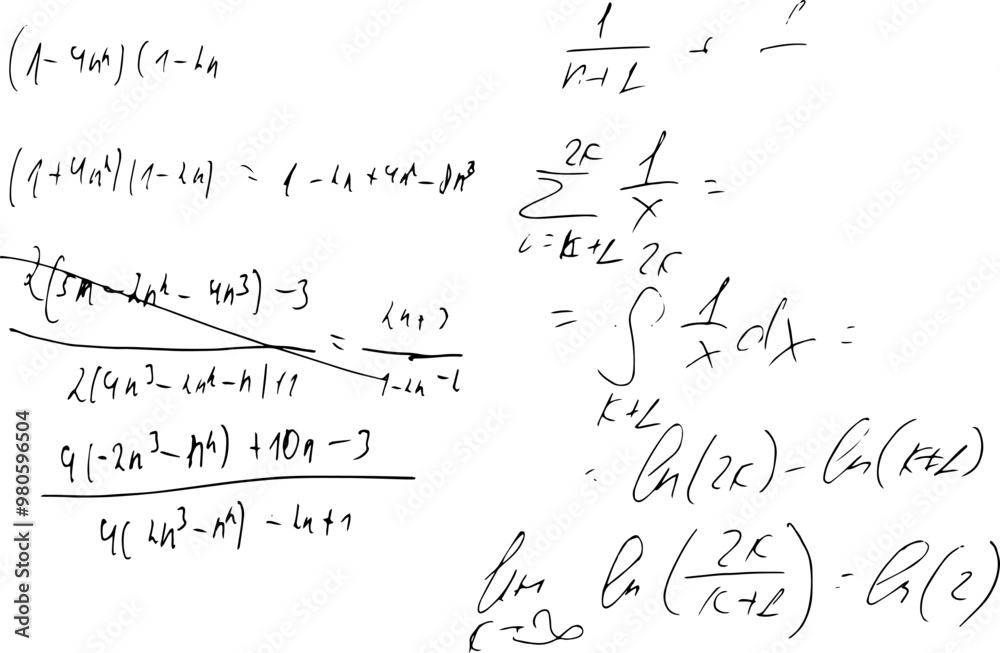 (1-4n²)(1-2n
(1+4n²)(1-2n) = 1-2n+4n²-8n³
2(5n-2n²-4n³)-3
2(4n³-2n²-n)+1
=
4(-2n³-n²)+10n-3
4(2n³-n²)-2n+1
1
n+1
+
2K
∑ 1/x =
i=K+1
2K
= ∫ 1/x dx =
K+1
ln(2K) - ln(K+1)
lim ln(2K/(K+1)) = ln(2)
K→∞
Adobe Stock | #980596504